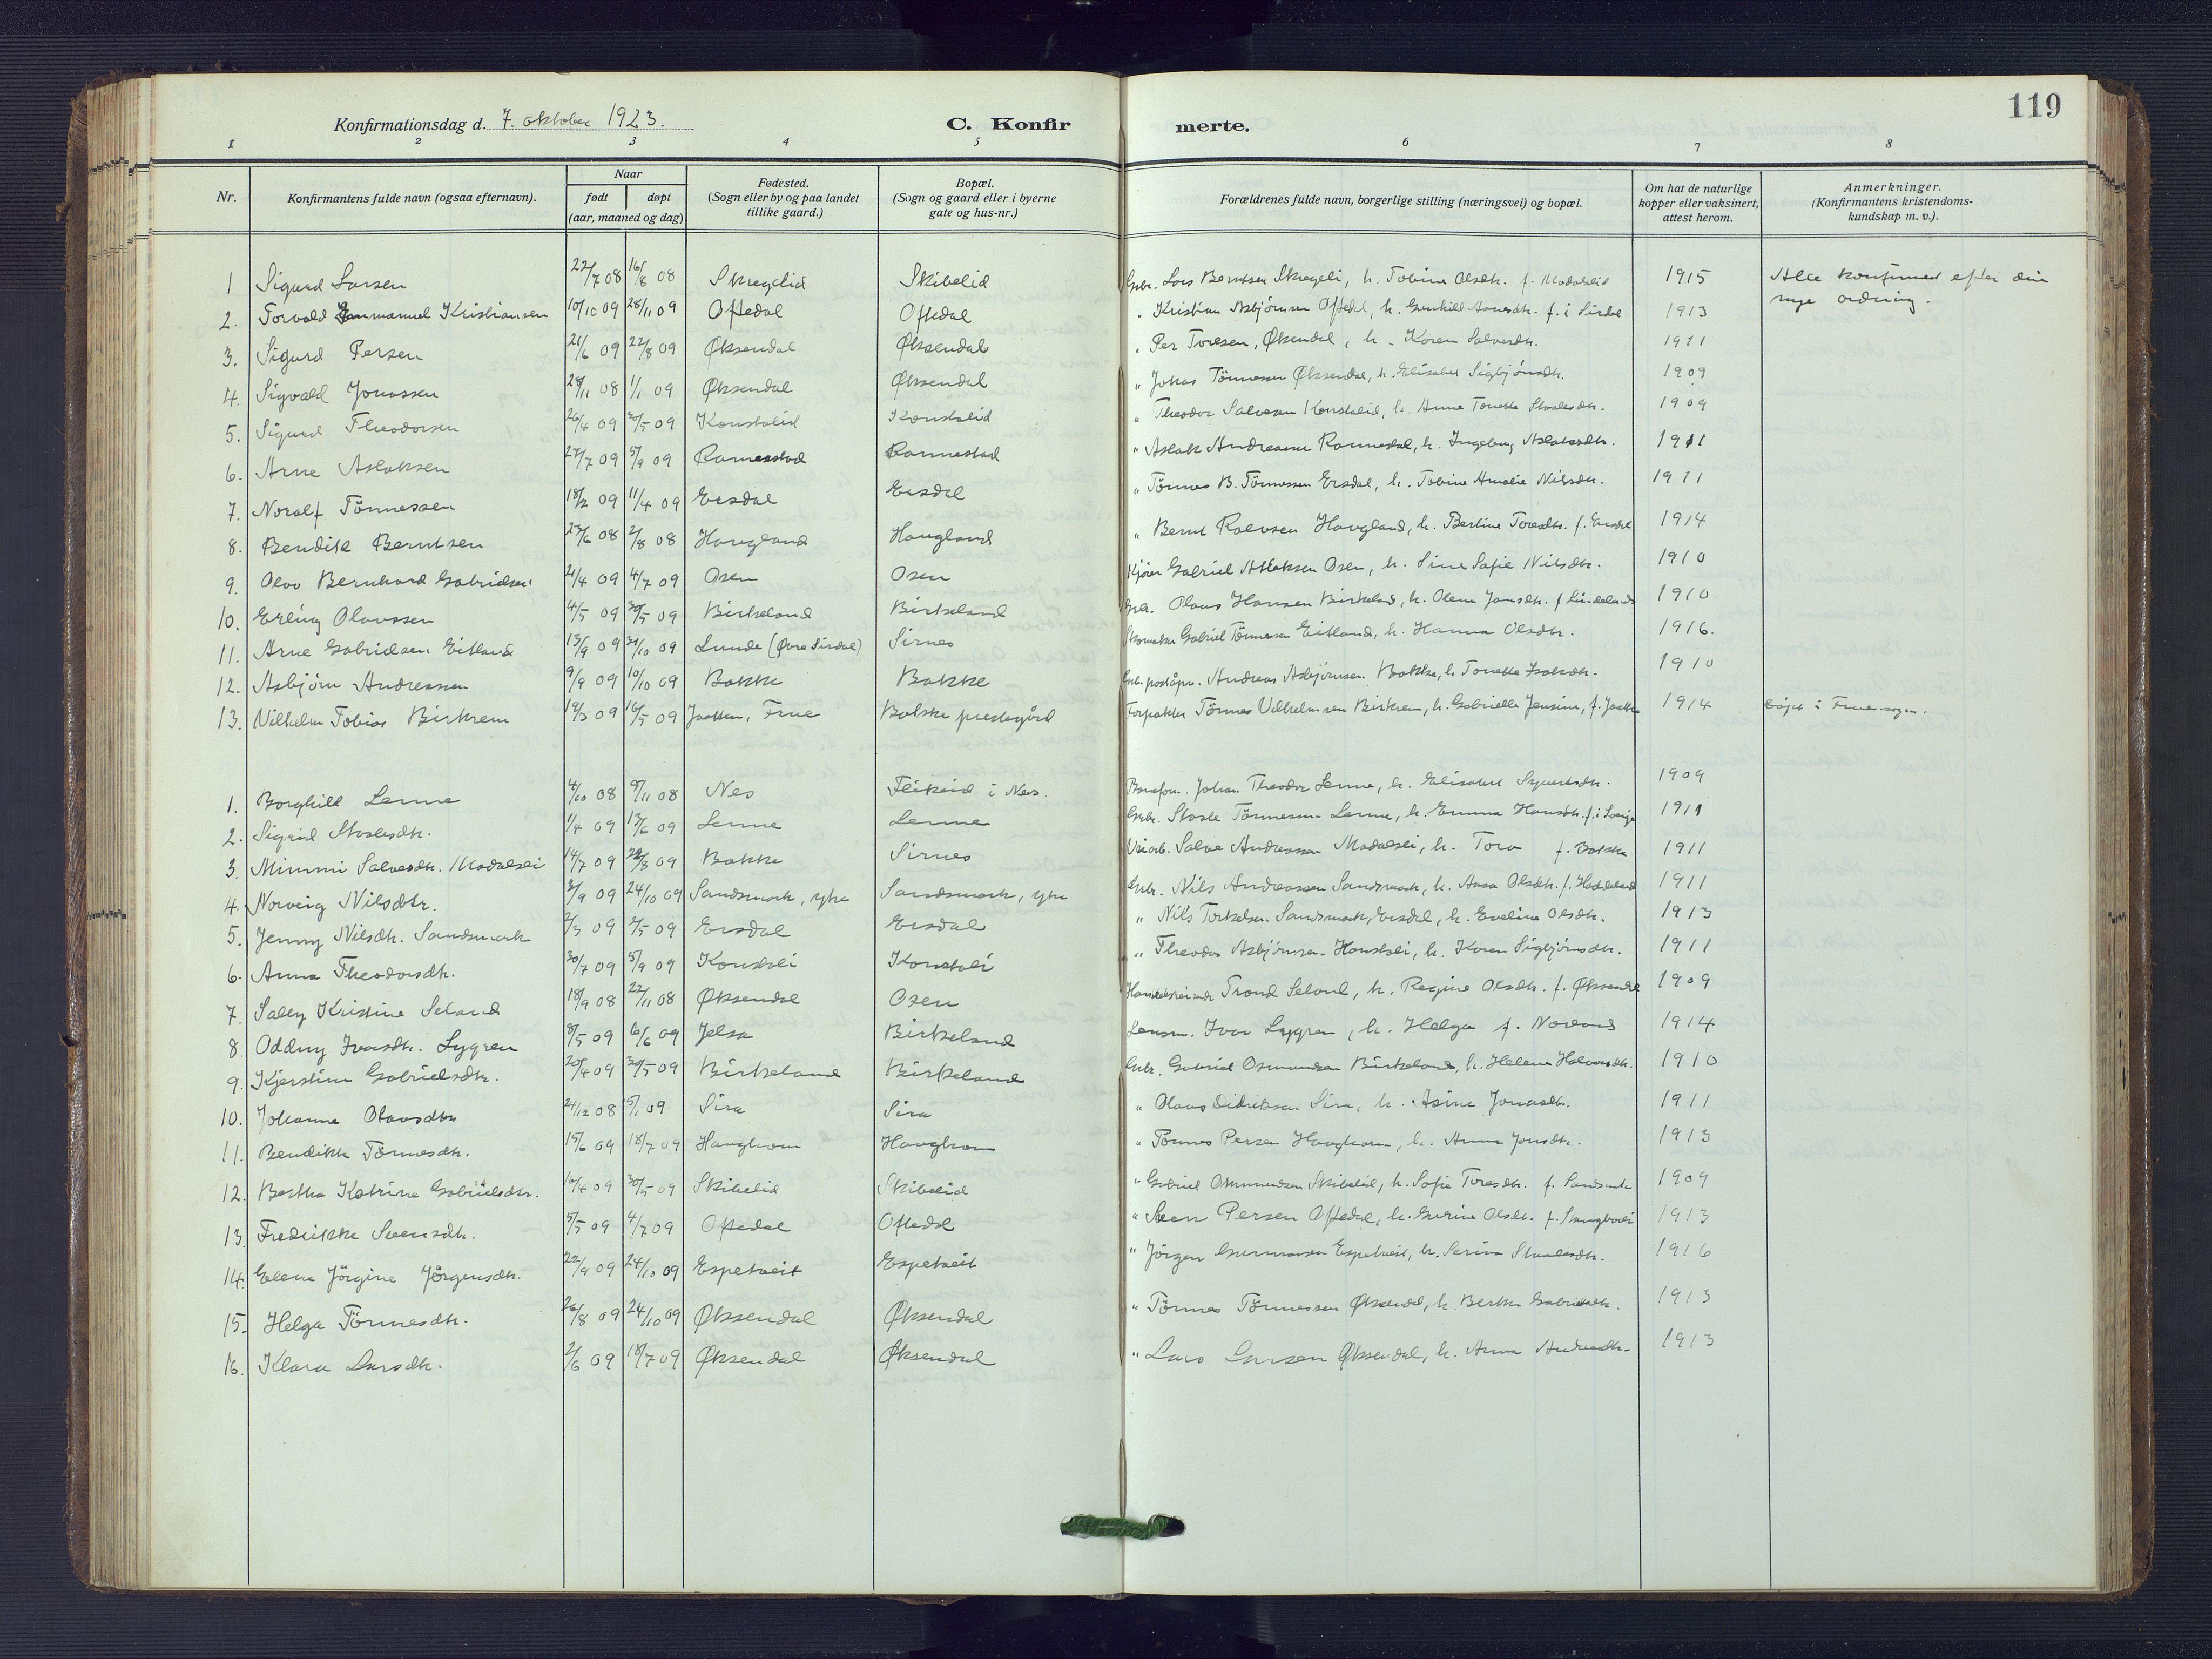 119
Konfirmationsdag d. 7. oktober 1923. C. Konfirmerte.
1 2 3 4 5 6 7 8
Nr. Konfirmantens fulde navn (ogsaa efternavn). Naar født døpt (aar, maaned og dag) Fødested. (Sogn eller by og paa landet tillike gaard.) Bopæl. (Sogn og gaard eller i byerne gate og hus-nr.) Forældrenes fulde navn, borgerlige stilling (næringsvei) og bopæl. Om hat de naturlige kopper eller vaksinert, attest herom. Anmerkninger. (Konfirmantens kristendomskundskap m. v.).
1 Sigurd Larsen 22/7 08 16/8 08 Skregelid Skibelid Grbr. Lars Berntsen Skregeli, h. Tobine Olsdtr. f. Modalslid 1915 Alle konfirmert efter den
nye ordning.
2. Torvald Emmanuel Kristiansen 10/10 09 28/11 09 Oftedal Oftedal " Kristian Asbjørnsen Oftedal, h. Gunhild f. i Sirdal 1913
3. Sigurd Persen 21/6 09 22/8 09 Øksendal Øksendal " Per Toresen, Øksendal, h. Karen Salvesdtr. 1911
4. Sigvald Jonassen 28/11 08 1/1 09 Øksendal Øksendal " Jonas Tönnesen Øksendal, h. Elisabet Sigbjörnsdtr. 1909
5. Sigurd Theodorsen 26/4 09 30/5 09 Konstalid Konstalid " Theodor Salvesen Konstalid, h. Anne Tonette Staalesdtr. 1909
6. Arne Aslaksen 27/7 09 5/9 09 Ramnestad Ramnestad " Aslak Andreassen Ramnesdal, h. Ingeborg Aslaksdtr. 1911
7. Noralf Tönnessen 18/2 09 11/4 09 Ersdal Ersdal " Tönnes B. Tönnessen Ersdal, h. Tobine Amalie Nilsdtr. 1911
8. Bendik Berntsen 23/6 08 2/8 08 Haugland Haugland " Bernt Rolvsen Haugland, h. Bertine Toresdtr. f. Ersdal 1914
9. Olav Bernhard Gabrielsen 21/4 09 4/7 09 Osen Osen Gabriel Atlaksen Osen, h. Sine Sofie Nilsdtr. 1910
10. Erling Olavssen 4/5 09 30/5 09 Birkeland Birkeland Grbr. Olaus Hansen Birkeland, h. Olene Jonsdtr. 1910
11. Arne Gabrielsen Eitland 13/9 09 31/10 09 Lunde (Øvre Sirdal) Sirnes Skomaker Gabriel Tönnesen Eitland, h. Hanna Olsdtr. 1916.
12. Asbjörn Andreassen 9/9 09 10/10 09 Bakke Bakke Grbr. poståpn. Andreas Asbjörnsen Bakke, h. Tonette Isaksdtr. 1910
13. Vilhelm Tobias Birkrem 19/3 09 16/5 09 Jaatten, Frue Bakke prestegård Forpakter Tönnes Vilhelmsen Birkrem, h. Gabrielle Jensine, f. Jaatten 1914 döpt i Frue sogn.
1. Borghild Lenne 4/10 08 8/11 08 Nes Flikeid i Nes. Johan Theodor Lenne, h. Elisabet Syvertsdtr. 1909
2. Sigrid Staalesdtr. 1/4 09 13/6 09 Lenne Lenne Grbr. Staale Tönnessen Lenne, h. Emma Hansdtr. f. i Sverige 1911
3. Mimmi Salvesdtr. Modalsli 14/7 09 29/8 09 Bakke Sirnes Veiarb. Salve Andreassen Modalsli, h. Tora f. Bakke 1911
4. Norveig Nilsdtr. 3/9 09 24/10 09 Sandsmark, ytre Sandsmark, ytre Grbr. Nils Andreassen Sandsmark, h. Aasa Olsdtr. f. Haddeland 1911
5. Jenny Nilsdtr. Sandsmark 2/3 09 2/5 09 Ersdal Ersdal " Nils Torkelsen Sandsmark, Ersdal, h. Eveline Olsdtr. 1913
6. Anna Theodorsdtr. 30/7 09 5/9 09 Konstali Konstali " Theodor Asbjörnsen Konstali, h. Karen Sigbjörnsdtr. 1911
7. Sally Kristine Seland 18/9 08 22/11 08 Øksendal Osen Handelsreisende Trond Seland, h. Regine Olsdtr. f. Øksendal 1909
8. Oddny Ivarsdtr. Lygren 8/5 09 6/6 09 Jelsa Birkeland Lensm. Ivar Lygren, h. Helga f. 1914
9. Kjerstine Gabrielsdtr. 20/4 09 30/5 09 Birkeland Birkeland Grbr. Gabriel Osmundsen Birkeland, h. Helene Halvorsdtr. 1910
10. Johanna Olavsdtr 24/12 08 5/1 09 Sira Sira " Olaus Didriksen Sira, h. Asine Jonasdtr. 1911
11. Bendikke Tönnesdtr. 15/6 09 18/7 09 Haughom Haughom " Tönnes Persen Haughom, h. Anna Jonsdtr. 1913
12. Bertha Katrine Gabrielsdtr. 16/4 09 30/5 09 Skibelid Skibelid " Gabriel Ommundsen Skibelid, h. Sofie Toresdtr. f. Sandsmark 1909
13. Fredrikke Svensdtr. 5/5 09 4/7 09 Oftedal Oftedal " Sven Persen Oftedal, h. Gurine Olsdtr. 1913
14. Elena Jörgine Jörgensdtr. 22/9 09 24/10 09 Espetveit Espetveit " Jörgen Gunnarsen Espetveit, h. Serina Staalesdtr. 1916
15. Helga Tönnesdtr. 26/8 09 24/10 09 Øksendal Øksendal " Tönnes Tönnessen Øksendal, h. Berthe Gabrielsdtr. 1913
16. Klara Larsdtr. 2/6 09 18/7 09 Øksendal Øksendal " Lars Larsen Øksendal, h. Anna Andreasdtr. 1913